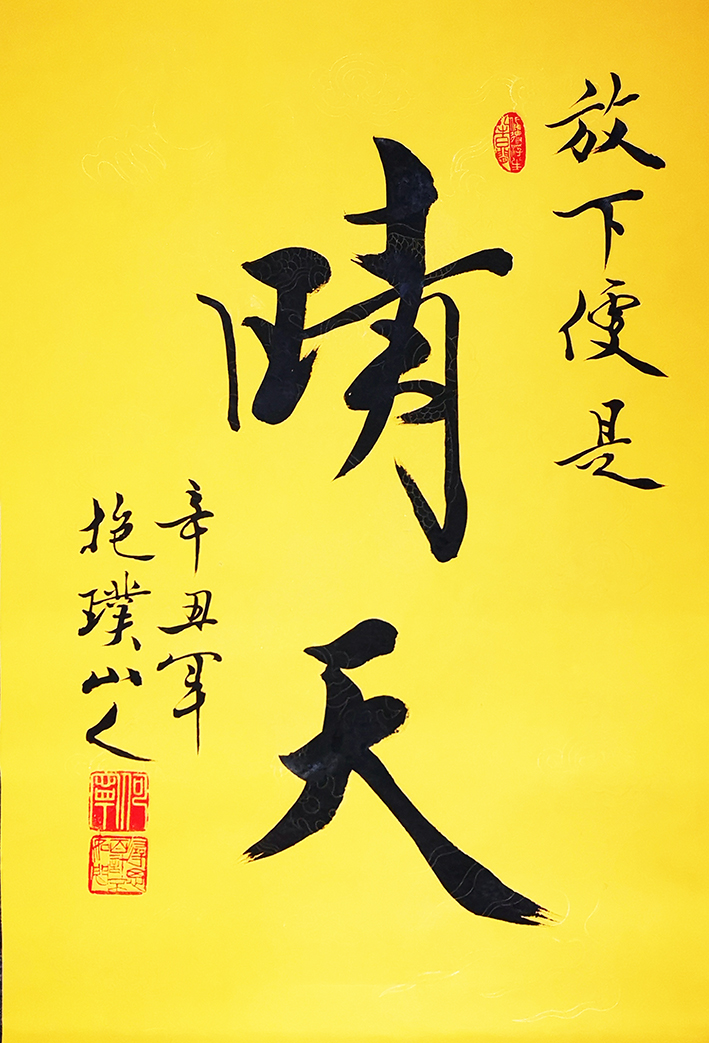 放下便是
晴天
辛丑年
抱璞山人